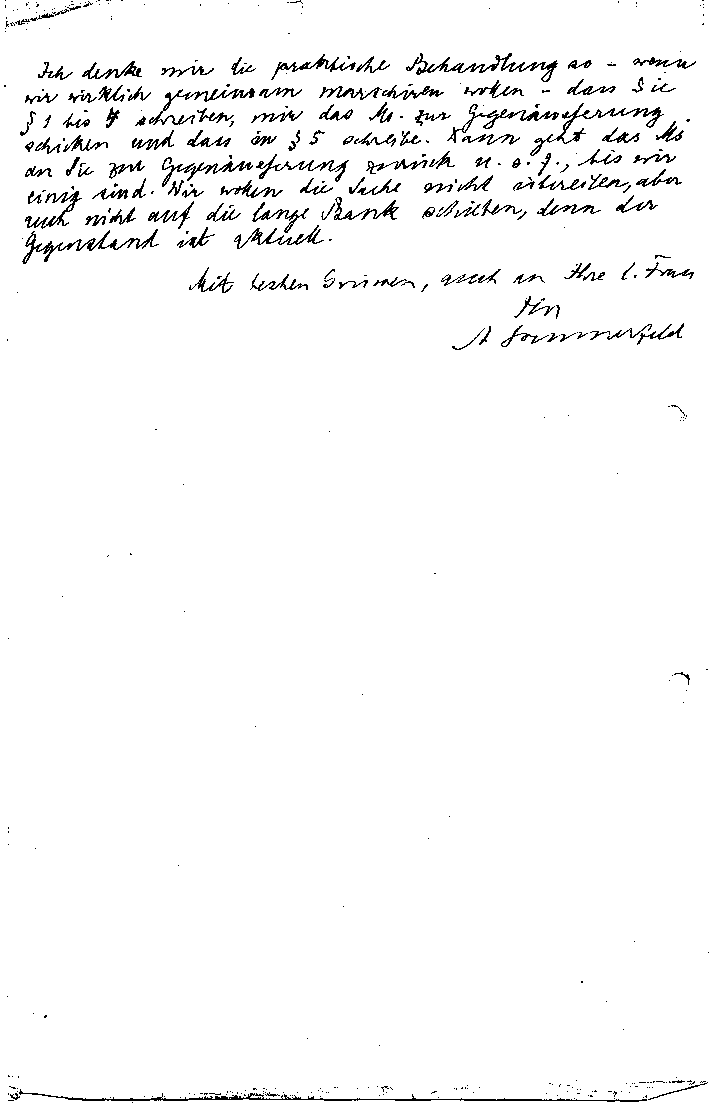 Ich denke mir die praktische Behandlung so – wenn
wir wirklich gemeinsam marschiren wollen – dass Sie
§ 1 bis 4 schreiben, mir das Ms. zur Gegenäusserung
schicken und dass ich § 5 schreibe. Dann geht das Ms
an Sie zur Gegenäusserung zurück u. s. f., bis wir
einig sind. Wir wollen die Sache nicht übereilen, aber
auch nicht auf die lange Bank schieben, denn der
Gegenstand ist aktuell.
Mit besten Grüssen, auch an Ihre l. Frau
Ihr
A Sommerfeld